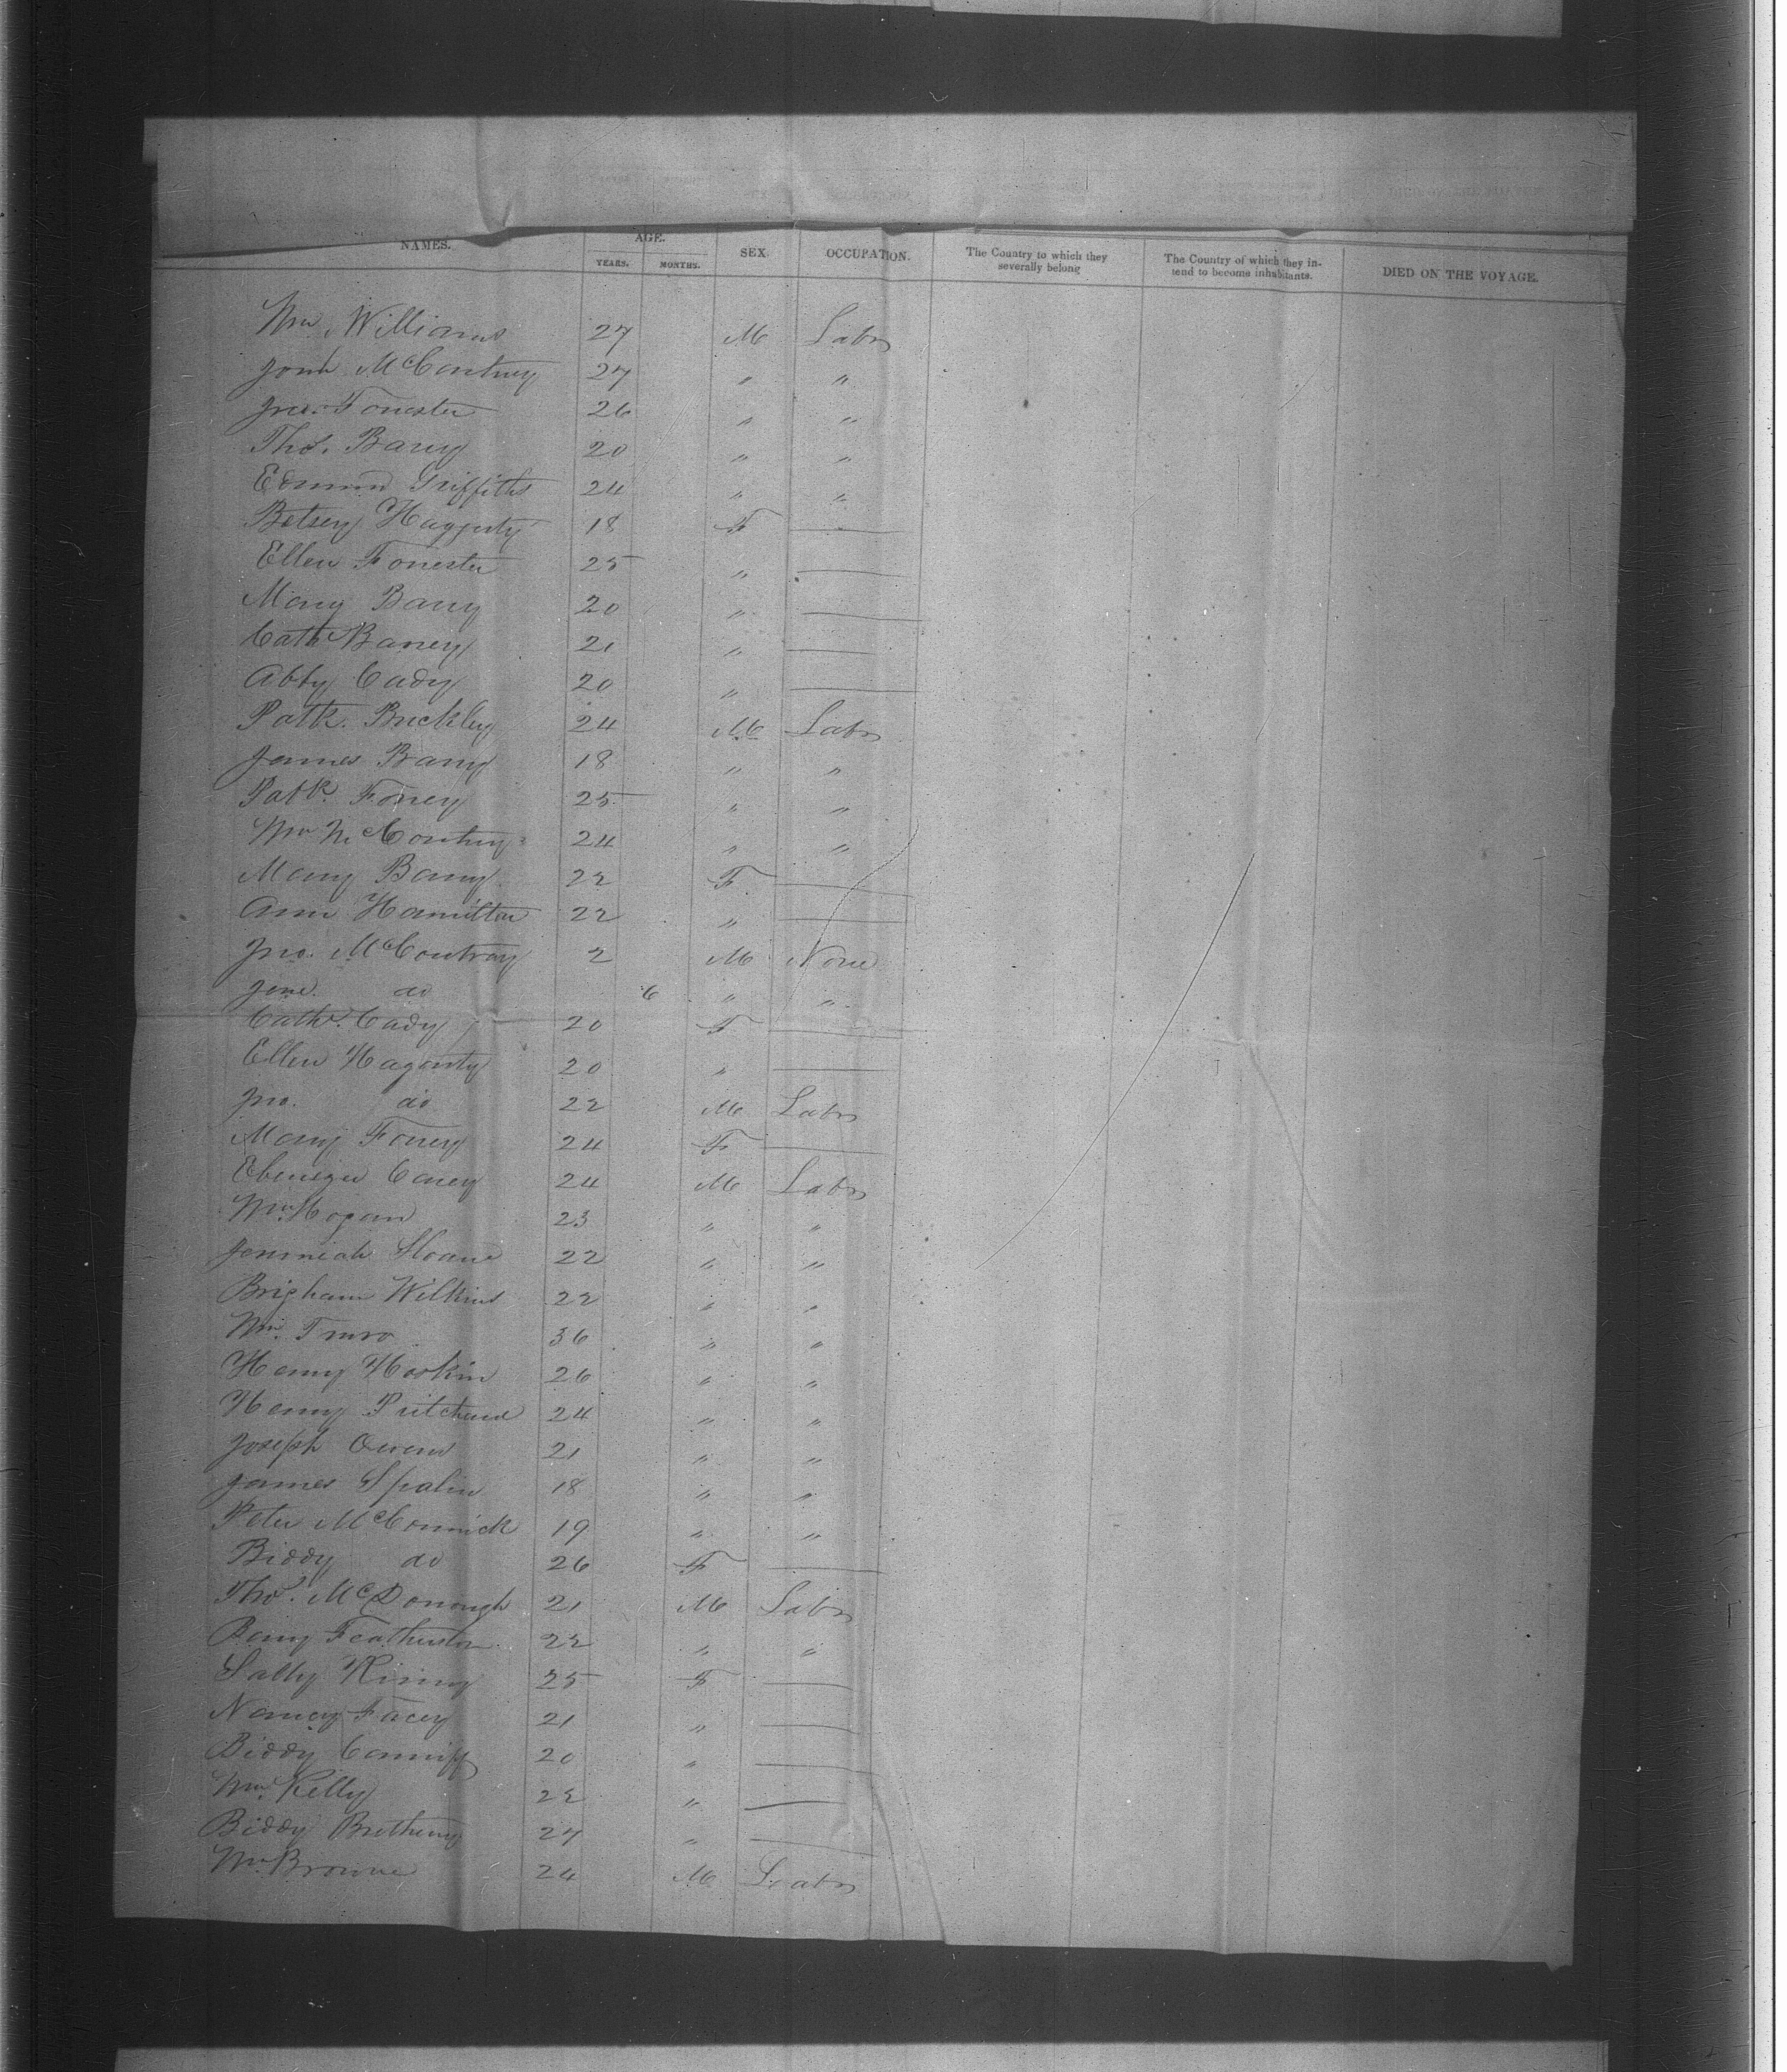 NAMES. AGE. YEARS. MONTHS. SEX. OCCUPATION. The Country to which they severally belong The Country of which they intend to become inhabitants. DIED ON THE VOYAGE.
Wm Williams 27 M Labr
McContney 27 " "
Jno. Forrester 26 " "
Thos. Barry 20 " "
Edmund Griffiths 24 " "
Betsey Haggerty 18 F —
Ellen Forrester 25 " —
Mary Barry 20 " —
Cath Barrey 21 " —
Abby Cady 20 " —
Patk. Buckley 24 M Labr
James Barry 18 " "
Patk. Forrey 25 " "
Wm McContney 24 " "
Mary Barry 22 F —
Ann Hamilton 22 " —
Jno. McContray 2 M None
Jane do 6 " "
Cathe. Cady 20 F —
Ellen Hagarty 20 " —
Jno. do 22 M Labr
Mary Forrey 24 F —
Ebenezer Carey 24 M Labr
Wm. Hogan 23 " "
Jeremiah Sloane 22 " "
Brigham Wilkins 22 " "
Wm. Truro 36 " "
Henry Hoskin 26 " "
Henry Pritchard 24 " "
Joseph Owens 21 " "
James Spalin 18 " "
Peter McCormick 19 " "
Biddy do 26 F —
Thos. McDonough 21 M Labr
Barry Featherston 22 " "
Sally 25 F —
Nancy Facey 21 " —
Biddy Canniff 20 " —
Wm. Kelly 22 " —
Biddy 27 " —
Wm. Browne 24 M Labr